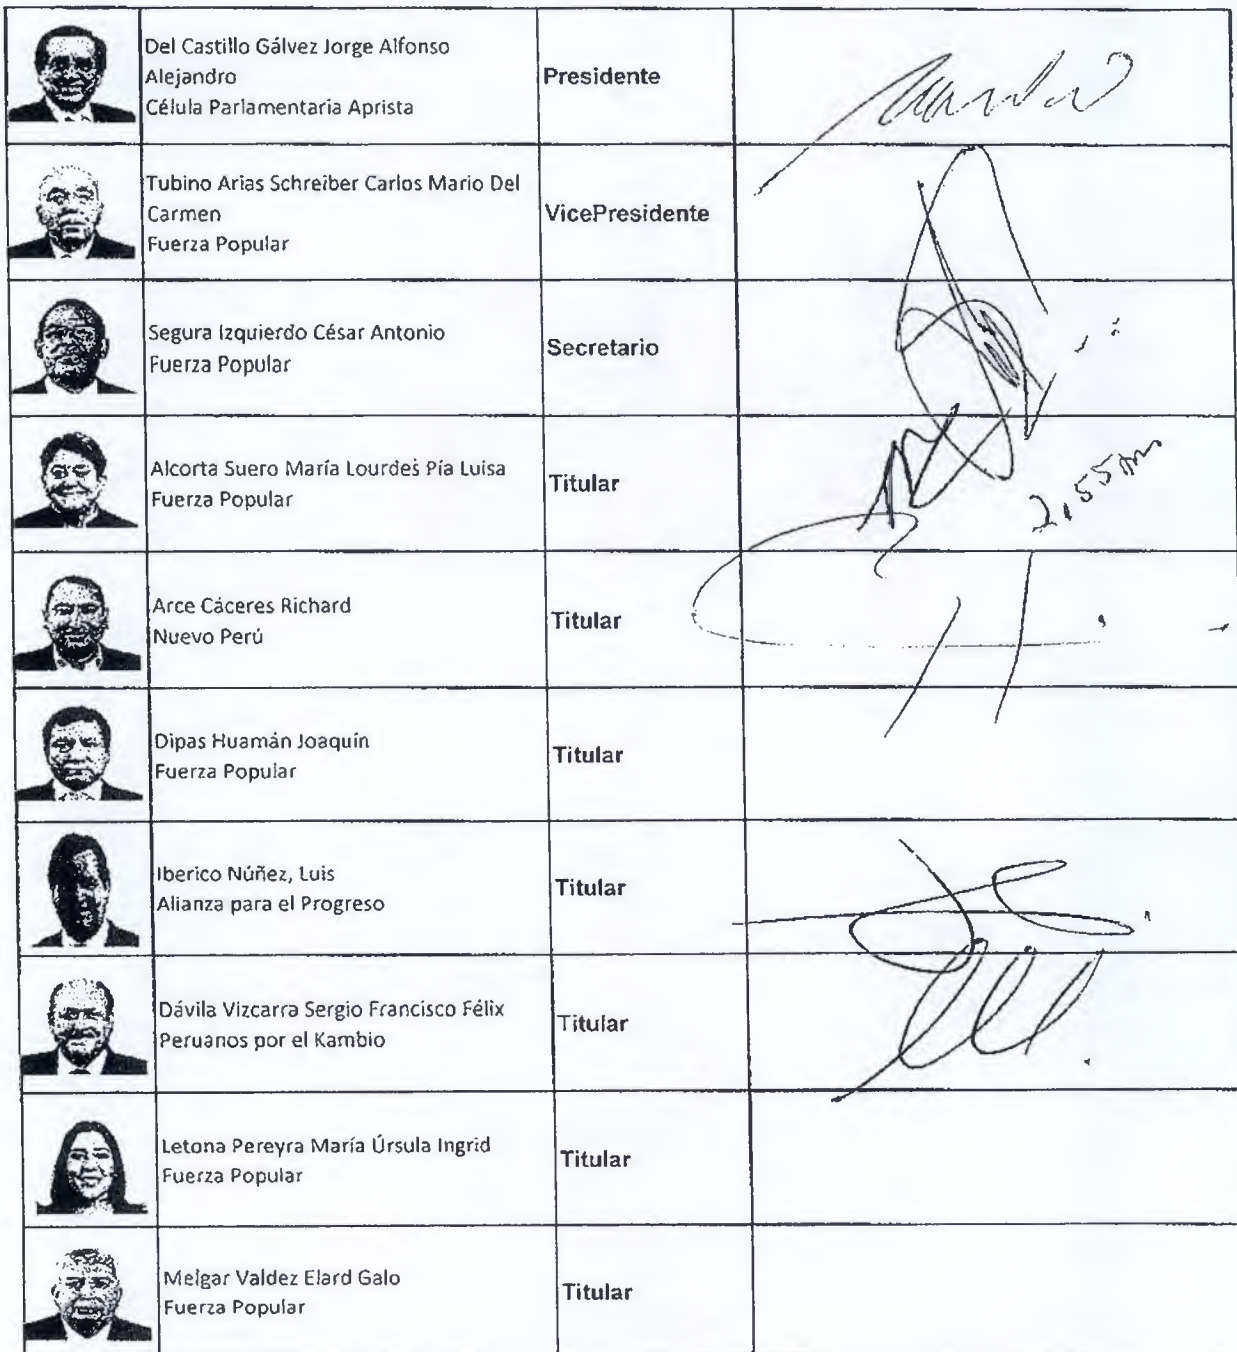 Del Castillo Gálvez Jorge Alfonso
Alejandro
Célula Parlamentaria Aprista
Presidente
Tubino Arias Schreiber Carlos Mario Del
Carmen
Fuerza Popular
VicePresidente
Segura Izquierdo César Antonio
Fuerza Popular
Secretario
Alcorta Suero María Lourdes Pía Luisa
Fuerza Popular
Titular
2,55 pm
Arce Cáceres Richard
Nuevo Perú
Titular
Dipas Huamán Joaquín
Fuerza Popular
Titular
Iberico Núñez, Luis
Alianza para el Progreso
Titular
Dávila Vizcarra Sergio Francisco Félix
Peruanos por el Kambio
Titular
Letona Pereyra María Úrsula Ingrid
Fuerza Popular
Titular
Melgar Valdez Elard Galo
Fuerza Popular
Titular